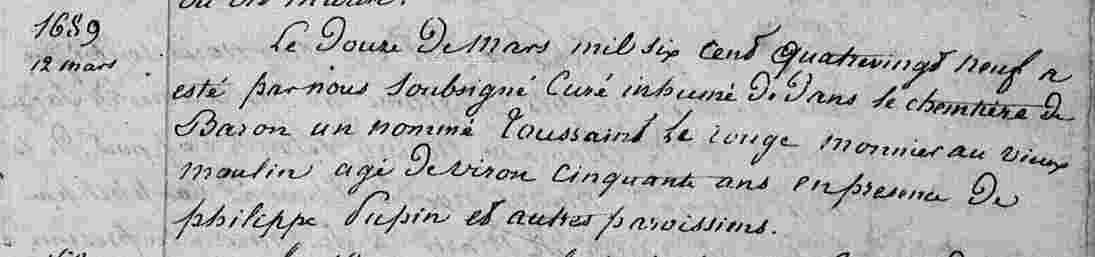 1689
12 mars
Le Douze De Mars mil six cent quatrevingt neuf a
esté par nous Soubsigné Curé inhumé De Dans le chemtiere De
Baron un nommé Toussaint Le rouge monnier au vieux
moulin agé De viron cinquante ans en presence De
philippe Pupin et autres paroissiens.